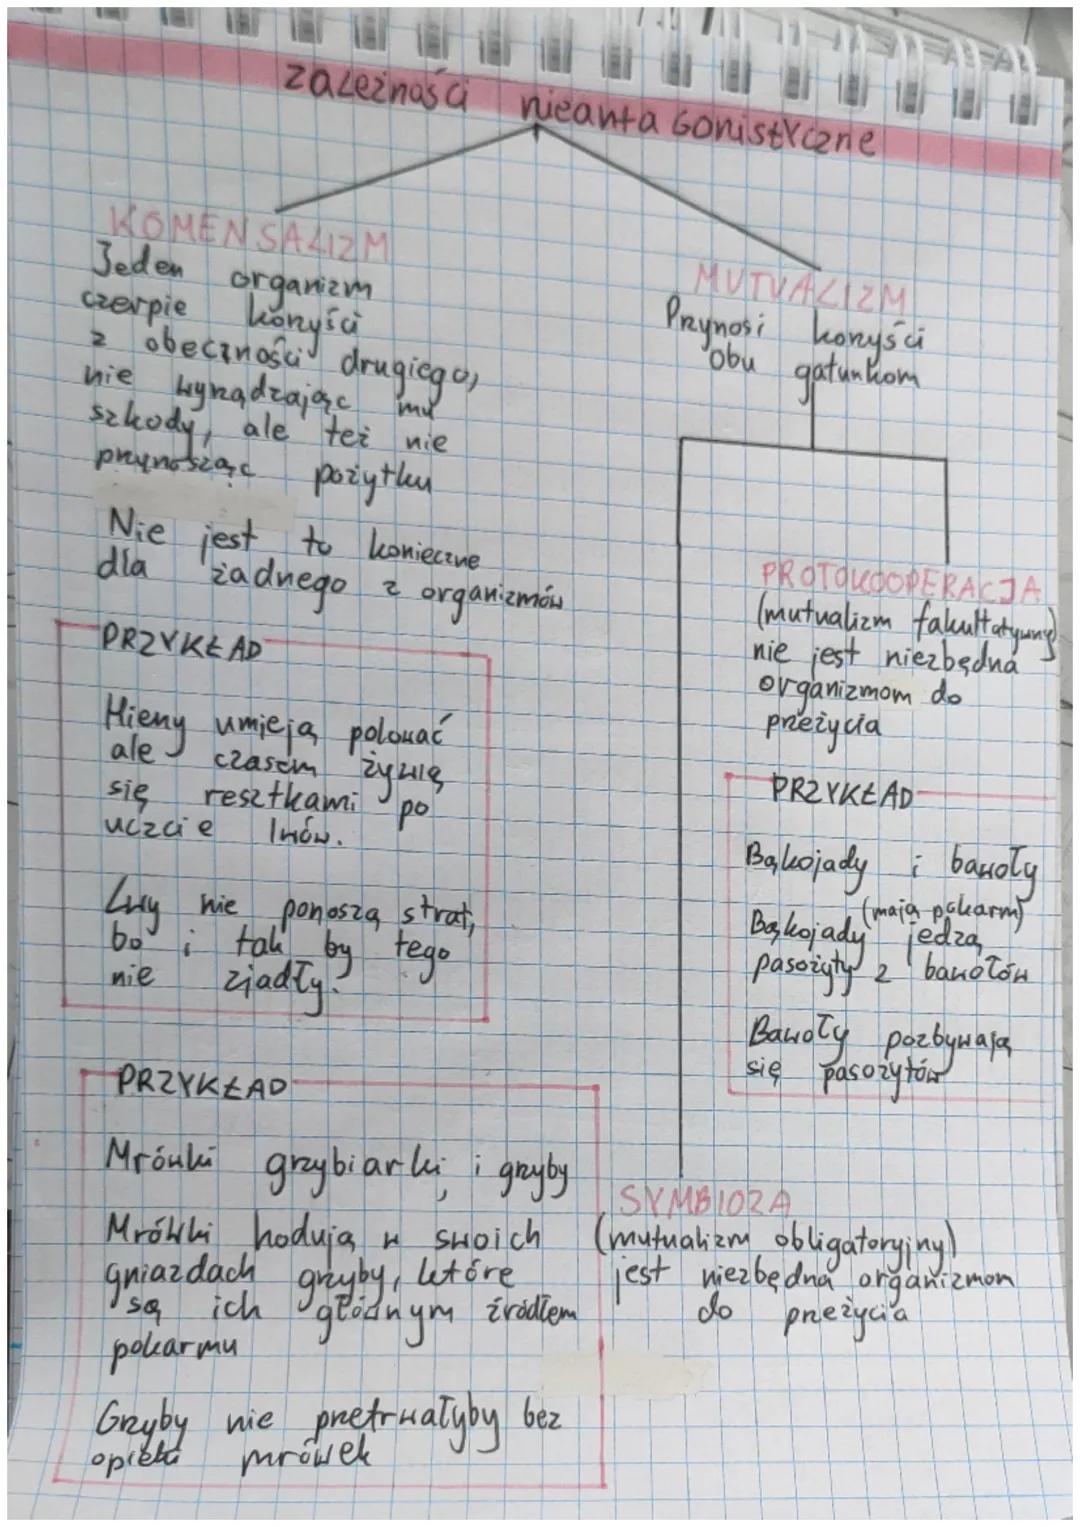 zależności nieantagonistyczne
KOMENSALIZM
Jeden organizm
czerpie korzyści
z obecności drugiego,
nie wyrządzając mu
szkody, ale też nie
przynosząc pożytku
Nie jest to konieczne
dla żadnego z organizmów
PRZYKŁAD
Hieny umieją polować
ale czasem żywią
się resztkami po
uczcie lwów.
Lwy nie ponoszą strat,
bo i tak by tego
nie zjadły.
MUTUALIZM
Przynosi korzyści
obu gatunkom
PROTOKOOPERACJA
(mutualizm fakultatywny)
nie jest niezbędna
organizmom do
przeżycia
PRZYKŁAD
Bąkojady i bawoły
(mają pokarm)
Bąkojady jedzą
pasożyty z bawołów
Bawoły pozbywają
się pasożytów
PRZYKŁAD
Mrówki grzybiarki i grzyby
Mrówki hodują w swoich
gniazdach grzyby, które
są ich głównym źródłem
pokarmu
Grzyby nie przetrwałyby bez
opieki mrówek
SYMBIOZA
(mutualizm obligatoryjny)
jest niezbędna organizmom
do przeżycia